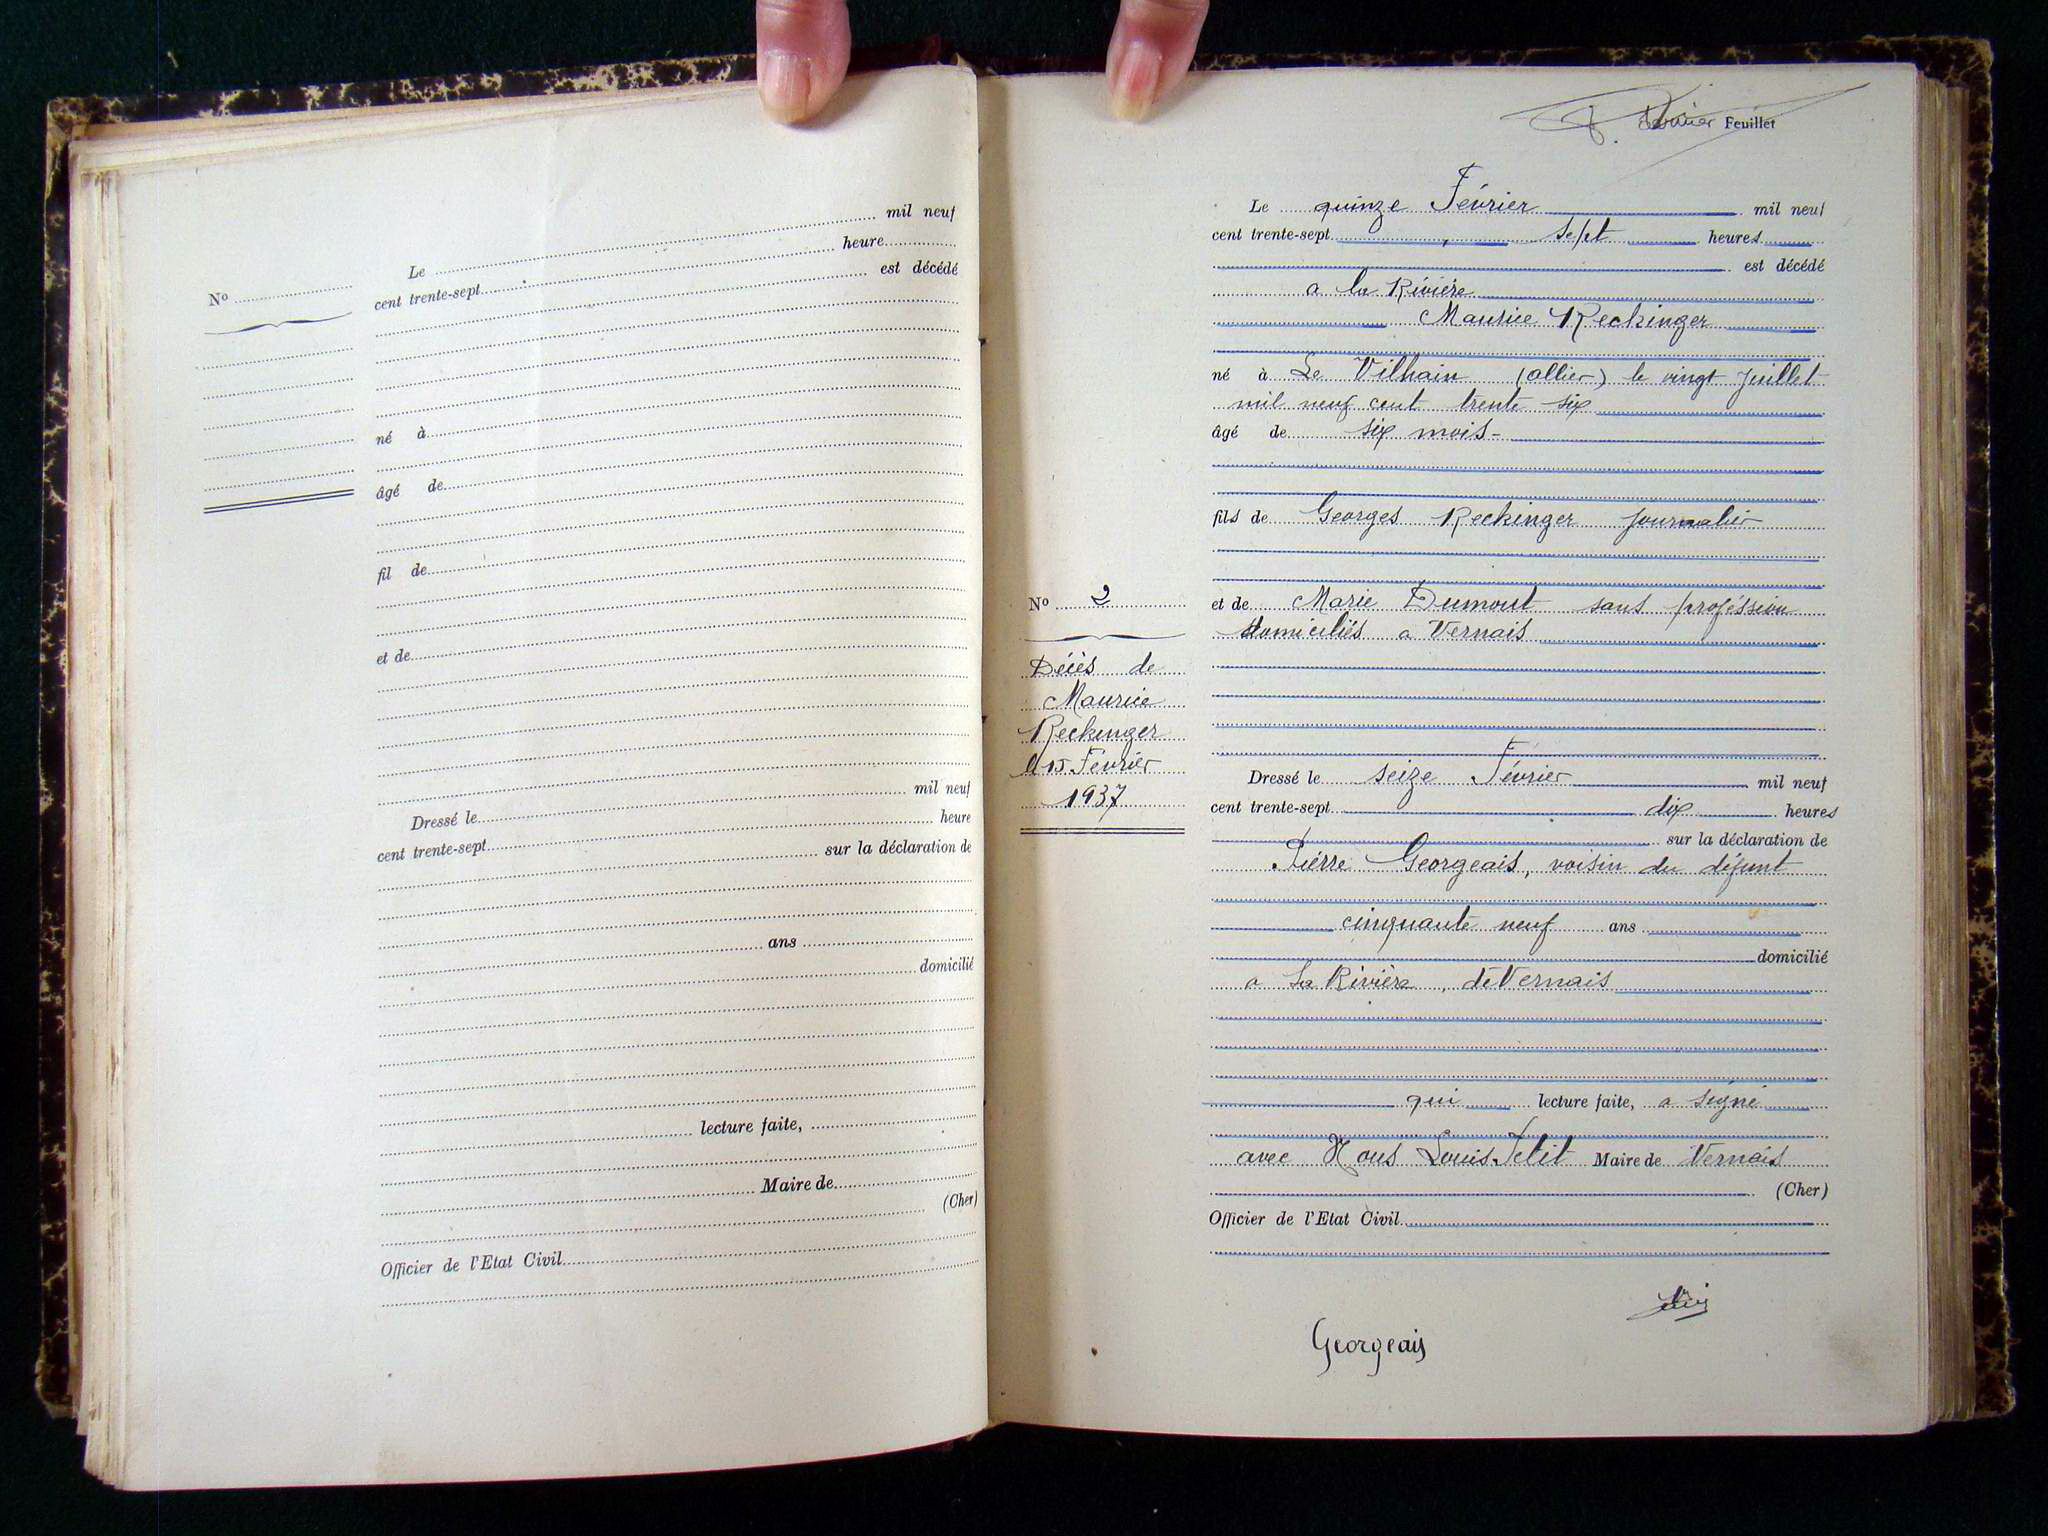 mil neuf
Le
heure
cent trente-sept
est décédé
No
né à
âgé de
fil de
et de
mil neuf
Dressé le
heure
cent trente-sept
sur la déclaration de
ans
domicilié
lecture faite,
Maire de
(Cher)
Officier de l'Etat Civil
Feuillet
Le quinze Février mil neuf
cent trente-sept sept heures
est décédé
a la Rivière
Maurice Reckinger
né à Le Vilhain (Allier) le vingt Juillet
mil neuf cent trente six
âgé de six mois-
fils de Georges Reckinger journalier
No 2
et de Marie Dumont sans proféssion
domiciliés a Vernais
Décès de
Maurice
Reckinger
le 15 Février
1937
Dressé le seize Février mil neuf
cent trente-sept dix heures
sur la déclaration de
Pierre Georgeais, voisin du défunt
cinquante neuf ans
domicilié
a La Rivière, de Vernais
qui lecture faite, a signé
avec Nous Louis Petit Maire de Vernais
(Cher)
Officier de l'Etat Civil
Georgeais